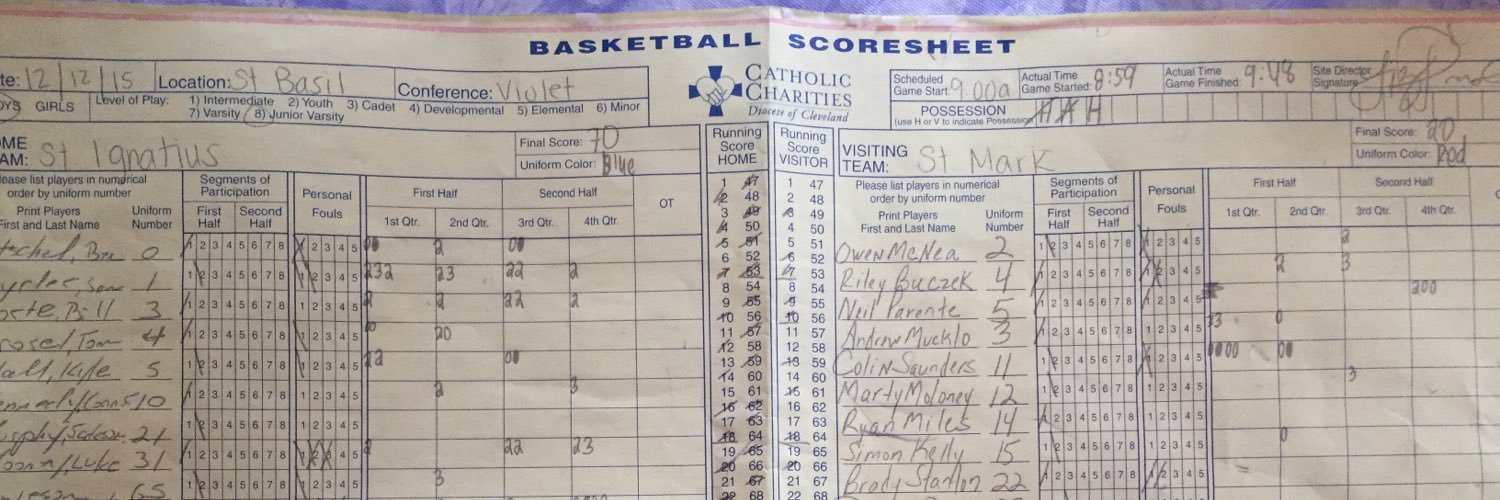 BASKETBALL SCORESHEET
te: 12/12/15 Location: St Basil Conference: Violet
CATHOLIC CHARITIES
Diocese of Cleveland
Scheduled Game Start: 9:00a Actual Time Game Started: 8:59 Actual Time Game Finished: 9:48 Site Director Signature
OYS GIRLS Level of Play: 1) Intermediate 2) Youth 3) Cadet 4) Developmental 5) Elemental 6) Minor
7) Varsity 8) Junior Varsity
POSSESSION
(use H or V to indicate Possession) H A H
OME TEAM: St Ignatius
Final Score: 70
Uniform Color: Blue
Running Score HOME
Running Score VISITOR
VISITING TEAM: St Mark
Final Score: 20
Uniform Color: Red
lease list players in numerical order by uniform number
Print Players First and Last Name
Uniform Number
Segments of Participation
First Half Second Half
Personal Fouls
First Half Second Half
1st Qtr. 2nd Qtr. 3rd Qtr. 4th Qtr.
OT
Please list players in numerical order by uniform number
Print Players First and Last Name
Uniform Number
Segments of Participation
First Half Second Half
Personal Fouls
First Half Second Half
1st Qtr. 2nd Qtr. 3rd Qtr. 4th Qtr.
0 1 2 3 4 5 6 7 8 1 2 3 4 5 00 2 00
1 1 2 3 4 5 6 7 8 1 2 3 4 5 232 23 22 2
Bill 3 1 2 3 4 5 6 7 8 1 2 3 4 5 2 2 22 2
Tom 4 1 2 3 4 5 6 7 8 1 2 3 4 5 20
Kyle 5 1 2 3 4 5 6 7 8 1 2 3 4 5 22 00
10 1 2 3 4 5 6 7 8 1 2 3 4 5 2 3
21 1 2 3 4 5 6 7 8 1 2 3 4 5
Luke 31 1 2 3 4 5 6 7 8 1 2 3 4 5 2 22 23
65 1 2 3 4 5 6 7 8 1 2 3 4 5 3
1 47 1 47
2 48 2 48
3 49 3 49
4 50 4 50
5 51 5 51
6 52 6 52
7 53 7 53
8 54 8 54
9 55 9 55
10 56 10 56
11 57 11 57
12 58 12 58
13 59 13 59
14 60 14 60
15 61 15 61
16 62 16 62
17 63 17 63
18 64 18 64
19 65 19 65
20 66 20 66
21 67 21 67
22 68 22 68
Owen McNea 2 1 2 3 4 5 6 7 8 1 2 3 4 5 2
Riley Buczek 4 1 2 3 4 5 6 7 8 1 2 3 4 5 2 3
Neil Parente 5 1 2 3 4 5 6 7 8 1 2 3 4 5 200
Andrew Mucklo 3 1 2 3 4 5 6 7 8 1 2 3 4 5 33 0
Colin Saunders 11 1 2 3 4 5 6 7 8 1 2 3 4 5 0000 00
Marty Moloney 12 1 2 3 4 5 6 7 8 1 2 3 4 5 3
Ryan Miles 14 1 2 3 4 5 6 7 8 1 2 3 4 5
Simon Kelly 15 1 2 3 4 5 6 7 8 1 2 3 4 5 0
Brody Stanton 22 1 2 3 4 5 6 7 8 1 2 3 4 5